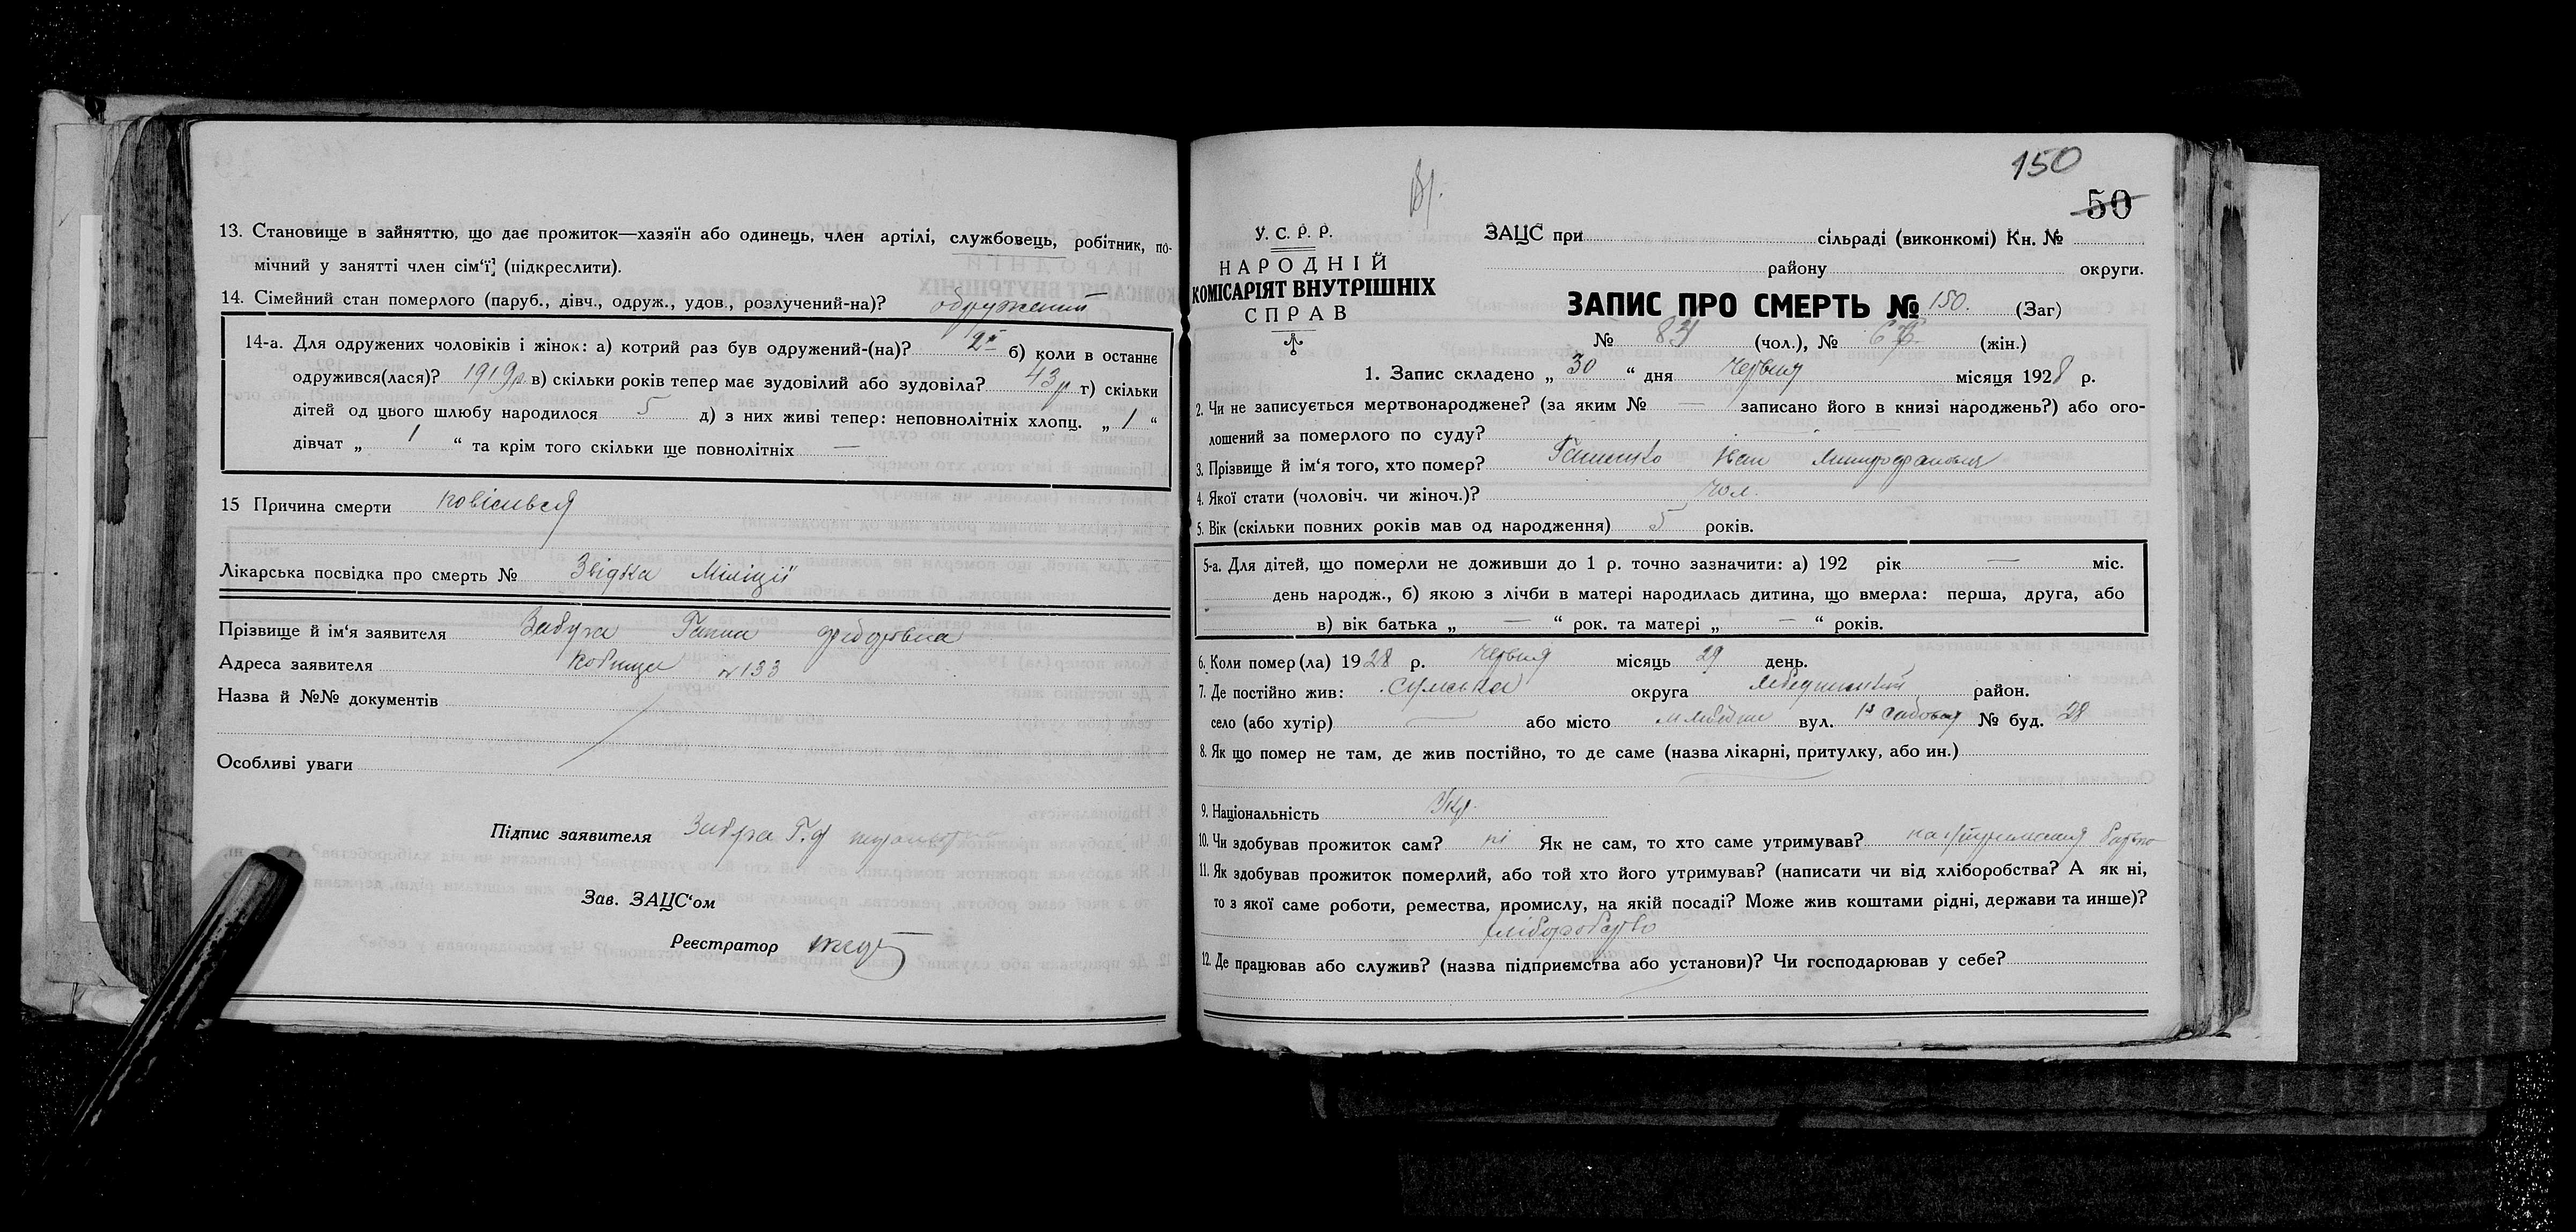 13. Становище в зайняттю, що дає прожиток—хазяїн або одинець, член артілі, службовець, робітник, по-
мічний у занятті член сім'ї (підкреслити).
14. Сімейний стан померлого (паруб., дівч., одруж., удов., розлучений-на)? одружений
14-а. Для одружених чоловіків і жінок: а) котрий раз був одружений-(на)? 2й б) коли в останнє
одружився(лася)? 1919р. в) скільки років тепер має зудовілий або зудовіла? 43р г) скільки
дітей од цього шлюбу народилося 5 д) з них живі тепер: неповнолітніх хлопц. „ 1 “
дівчат „ 1 “ та крім того скільки ще повнолітніх —
15 Причина смерти повісився
Лікарська посвідка про смерть № Звідка Міліції
Прізвище й ім'я заявителя Забуга Ганна Федотівна
Адреса заявителя Кобища №133
Назва й №№ документів
Особливі уваги
Підпис заявителя
Зав. ЗАЦС'ом
Реєстратор
150
50
У. С. Р. Р.
НАРОДНІЙ
КОМІСАРІЯТ ВНУТРІШНІХ
СПРАВ
ЗАЦС при сільраді (виконкомі) Кн. №
району округи.
ЗАПИС ПРО СМЕРТЬ № 150. (Заг)
№ 83 (чол.), № (жін.)
1. Запис складено „ 30 “ дня Червня місяця 1928 р.
2. Чи не записується мертвонароджене? (за яким № — записано його в книзі народжень?) або ого-
лошений за померлого по суду?
3. Прізвище й ім'я того, хто помер? Іван Митрофанович
4. Якої стати (чоловіч. чи жіноч.)? чол.
5. Вік (скільки повних років мав од народження) 5 років.
5-а. Для дітей, що померли не доживши до 1 р. точно зазначити: а) 192 рік — міс.
день народж., б) якою з лічби в матері народилась дитина, що вмерла: перша, друга, або
в) вік батька „ — “ рок. та матері „ — “ років.
6. Коли помер(ла) 1928 р. Червня місяць 29 день.
7. Де постійно жив: Сумська округа Лебединський район.
село (або хутір) — або місто м Лебедин вул. 1я Садовая № буд. 28
8. Як що помер не там, де жив постійно, то де саме (назва лікарні, притулку, або ин.)
9. Національність Укр.
10. Чи здобував прожиток сам? ні Як не сам, то хто саме утримував? на утриманні батька
11. Як здобував прожиток померлий, або той хто його утримував? (написати чи від хліборобства? А як ні,
то з якої саме роботи, ремества, промислу, на якій посаді? Може жив коштами рідні, держави та инше)?
хліборобство
12. Де працював або служив? (назва підприємства або установи)? Чи господарював у себе?